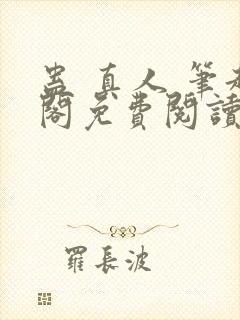 蛊真人筆
閣免費閱讀
羅長波